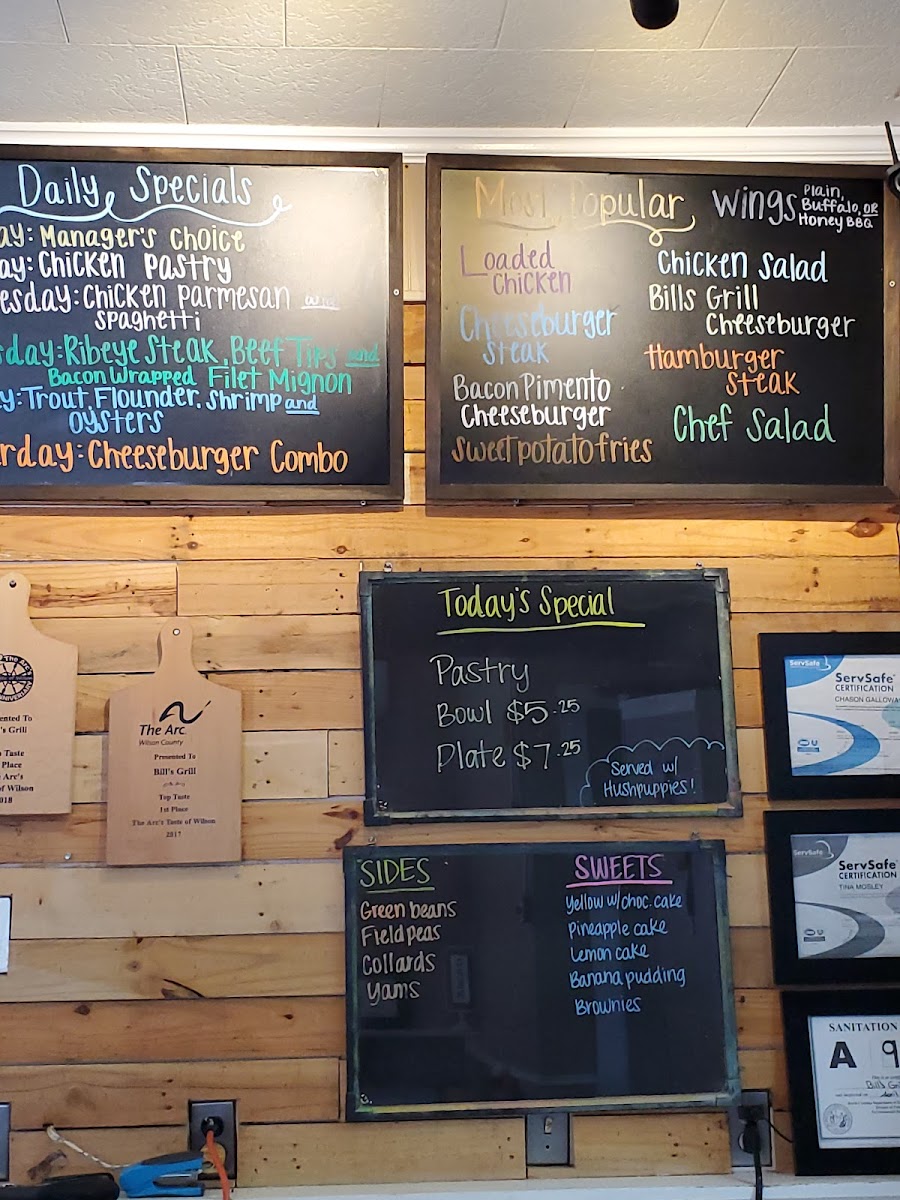 Daily Specials
ay: Manager's choice
ay: Chicken Pastry
esday: Chicken Parmesan and
spaghetti
sday: Ribeye Steak, Beef Tips and
Bacon Wrapped Filet Mignon
y: Trout, Flounder, Shrimp and
Oysters
rday: Cheeseburger Combo
Most Popular
Loaded
Chicken
Cheeseburger
Steak
Bacon Pimento
Cheeseburger
Sweet potato fries
Wings Plain,
Buffalo, OR
Honey BBQ
Chicken Salad
Bills Grill
Cheeseburger
Hamburger
Steak
Chef Salad
Today's Special
Pastry
Bowl $5.25
Plate $7.25
Served w/
Hushpuppies!
SIDES
Green beans
Field peas
Collards
Yams
SWEETS
Yellow w/choc. cake
Pineapple cake
Lemon cake
Banana pudding
Brownies
The Arc
ented To
's Grill
Taste
Place
Arc's
of Wilson
018
The Arc
Wilson County
Presented To
Bill's Grill
Top Taste
1st Place
The Arc's Taste of Wilson
2017
ServSafe
ServSafe
CERTIFICATION
CHASON GALLOWA
ServSafe
ServSafe
CERTIFICATION
TINA MOSLEY
SANITATION
A 9
Bill's Gri